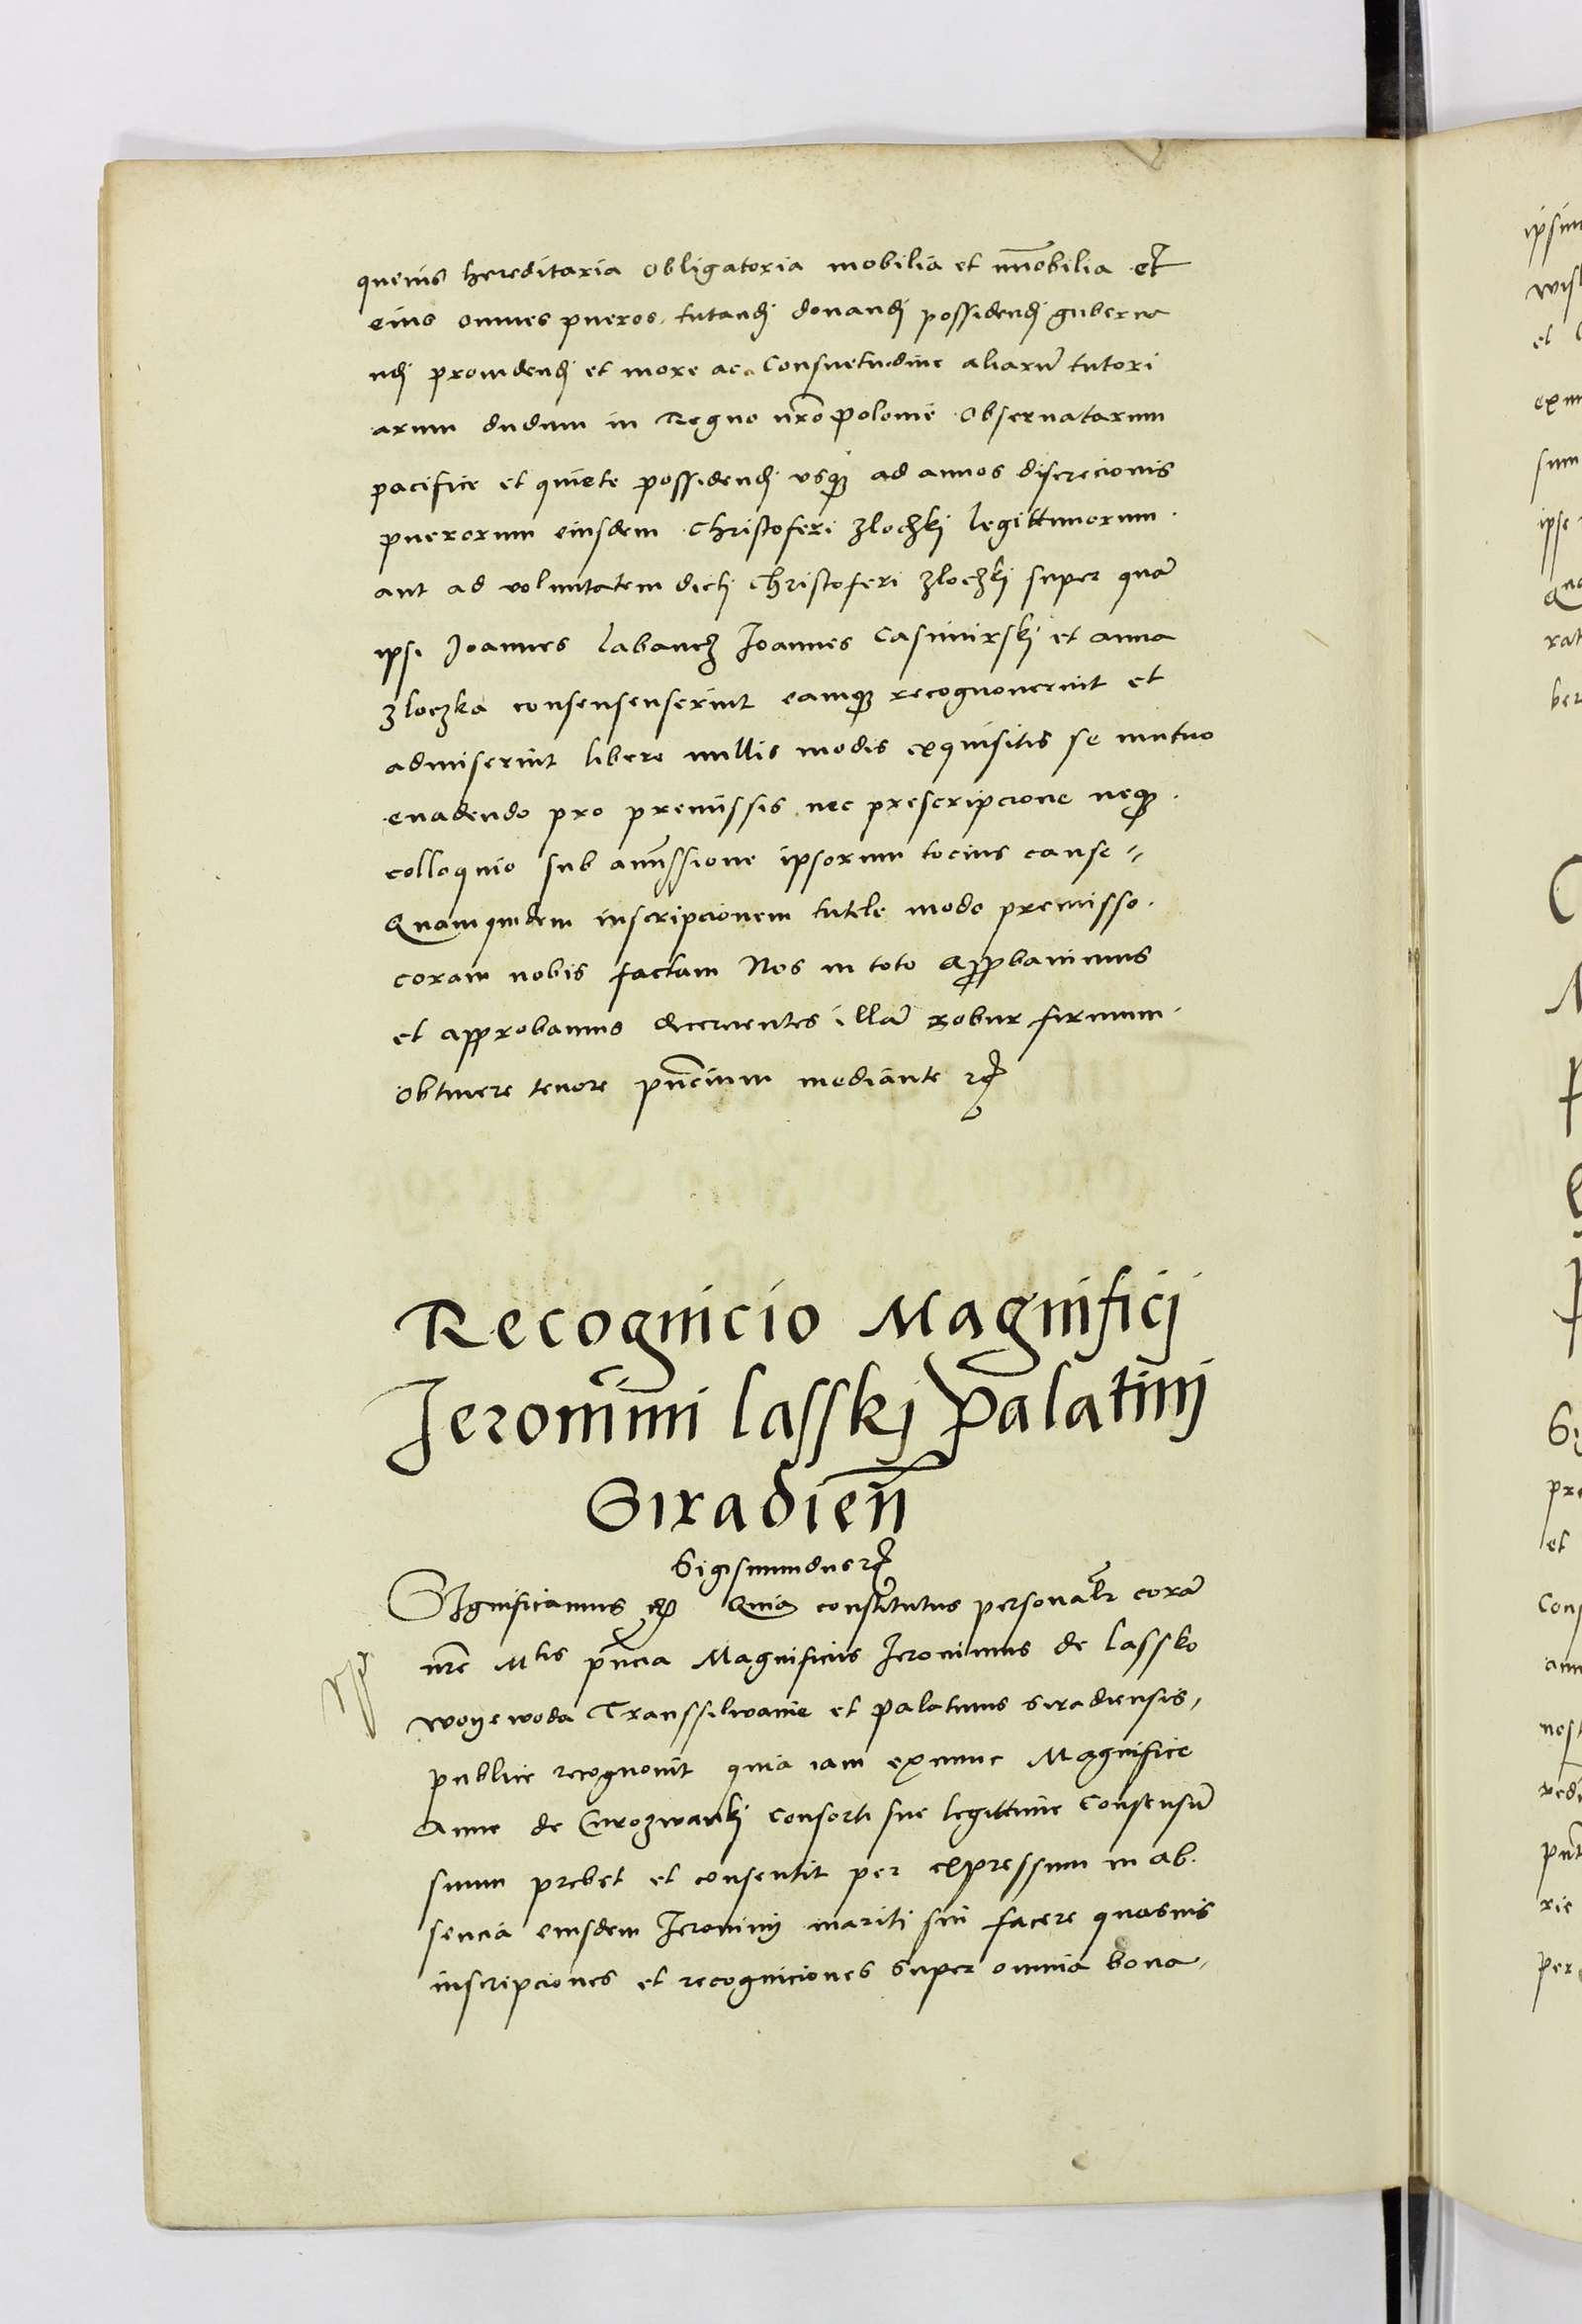 quevis hereditaria obligatoria mobilia et im̄obilia et
eius omnes pueros tutandj donandj possidendj guberna
ndj prouidendj et more ac consuetudine aliarū tutori
arum dudum in Regno nr̄o polonie obseruatarum
pacifice et quiete possidendj vsqꝫ ad annos discrecionis
puerorum eiusdem Christoferi zloczkj legittimorum.
aut ad voluntatem dictj Christoferi zloczkj super quā
ipsi Joannes labancz Joannes Casimirskj et anna
zloczka consensenserint eamqꝫ recognouerint et
admiserint libere nullis modis exquisitis se mutuo
euadendo pro premissis nec prescripcione neqꝫ.
colloquio sub amissione ipsorum tocius cause
Quamquidem inscripcionem tutele modo premisso.
coram nobis factam Nos in toto approbauimus
et approbamus decernentes illā robur firmum.
obtinere tenore pn̄cium mediante ꝛc
Recognicio Magnificj
Jeronimi lasskj palatinj
Siradien̄
Sigismundus ꝛc
SIgnificamus Quia constitutus personalr̄ corā
nr̄e Mtis pn̄cia Magnificus Jeronimus de lassko
woyewoda Transsilwanie et palatinus siradiensis,
publice recognouit quia iam exnunc Magnifice
Anne de Curozwankj consorti sue legittime consensū
suum prebet et consentit per expressum in ab.
sencia eiusdem Jeronimj mariti sui facere quasuis
inscripciones et recogniciones super omnia bona,